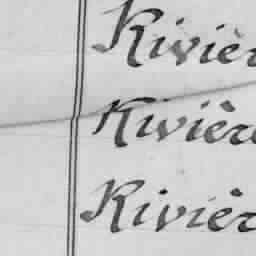 Rivièr
Rivière
Rivièr